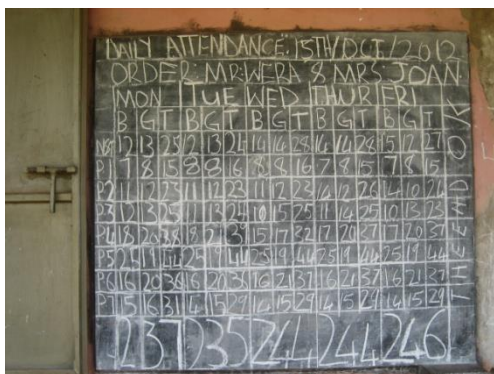 DAILY ATTENDANCE: 15TH/OCT/2012
ORDER: MR. WERA & MRS JOAN.
MON TUE WED THUR FRI
B G T B G T B G T B G T B G T
NSR 12 13 25 12 13 25 14 14 28 14 14 28 15 12 27
P1 7 8 15 8 8 16 8 8 16 7 8 15 7 8 15
P2 11 12 23 11 12 23 11 12 23 14 12 26 14 10 24
P3 12 13 25 11 13 24 10 15 25 11 14 25 10 13 23
P4 18 20 38 18 15 17 32 17 20 37 17 20 37
P5 25 19 44 25 19 44 25 19 44 25 19 44 25 19 44
P6 16 20 36 16 20 36 16 21 37 16 21 37 16 21 37
P7 15 16 31 14 15 29 14 15 29 14 15 29 14 15 29
237 235 244 244 246
TIME END OK